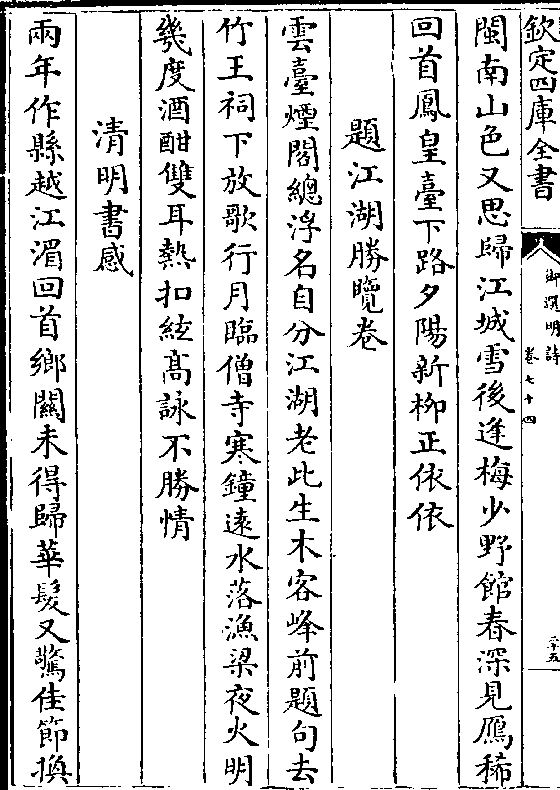 欽定四庫全書
御選明詩
卷七十四
二十五
閩南山色又思歸江城雪後逢梅少野館春深見鴈稀
回首鳳皇臺下路夕陽新柳正依依
題江湖勝覽卷
雲臺煙閣總浮名自分江湖老此生木客峰前題句去
竹王祠下放歌行月臨僧寺寒鐘遠水落漁梁夜火明
幾度酒酣雙耳熱扣舷高詠不勝情
清明書感
兩年作縣越江湄回首鄉關未得歸華髮又驚佳節換